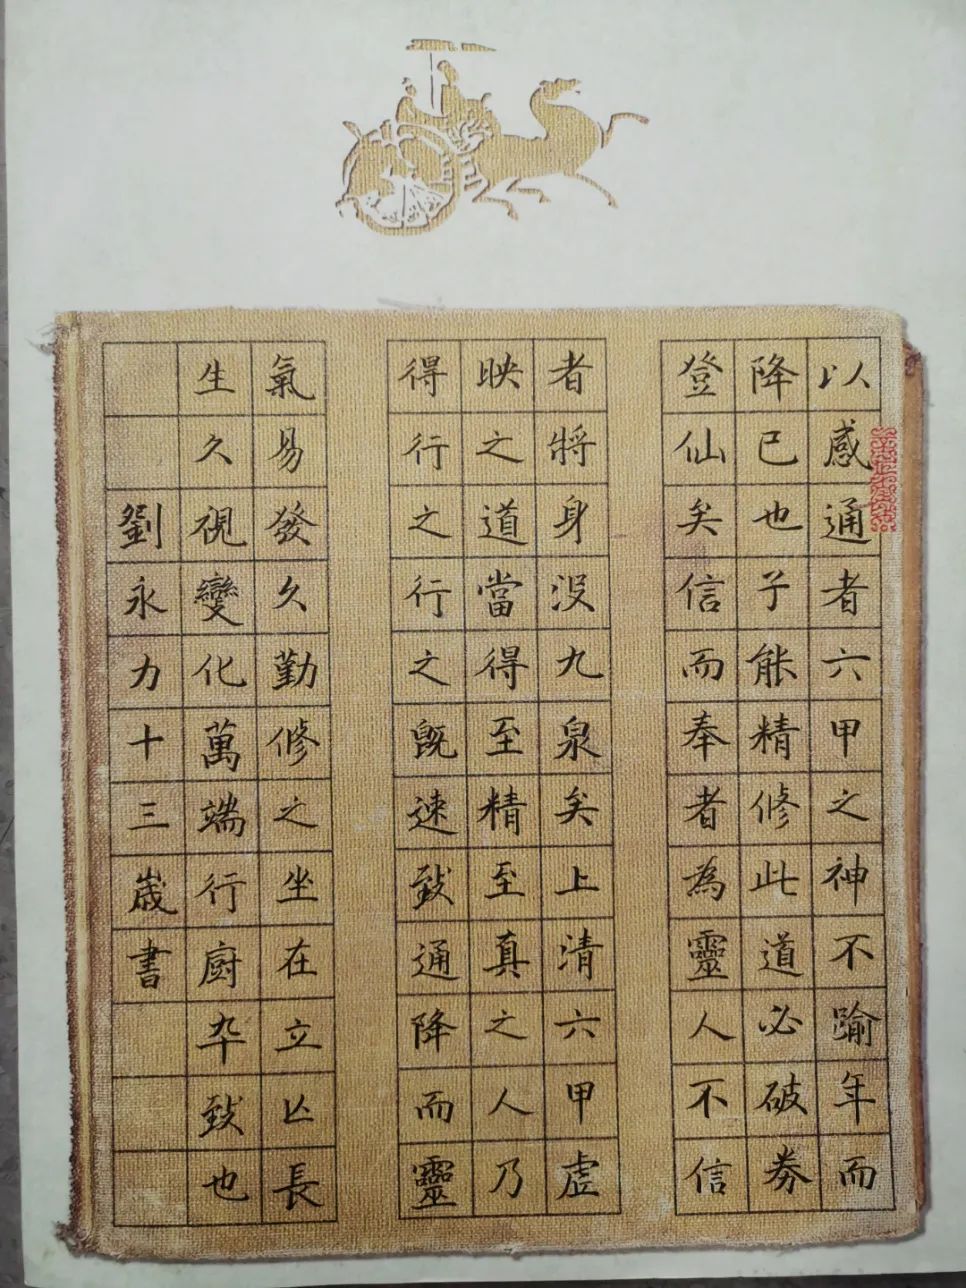 以感通者六甲之神不踰年而
降已也子能精修此道必破券
登仙矣信而奉者為靈人不信
者將身没九泉矣上清六甲虛
映之道當得至精至真之人乃
得行之行之既速致通降而靈
氣易發久勤修之坐在立亡長
生久視變化萬端行廚卒致也
劉永力十三歲書